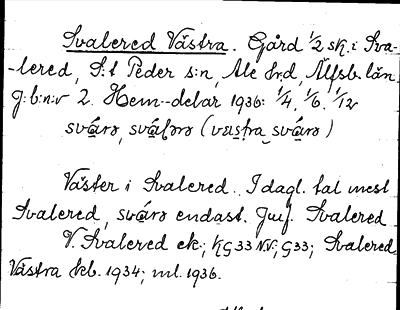 Svalered Västra. Gård 1/2 sk. i Sva-
-lered, S:t Peder s:n, Ale hrd, Älfsb. län
g:b:n:v 2. Hem.-delar 1936: 1/4, 1/6, 1/12
svárə, sváləro (vɛstra sváro)
Väster i Svalered. I dagl. tal mest
Svalered, svárə endast. Jmf. Svalered
V. Svalered ek., KG 33 N.V., G33; Svalered
Västra kb. 1934; ml. 1936.